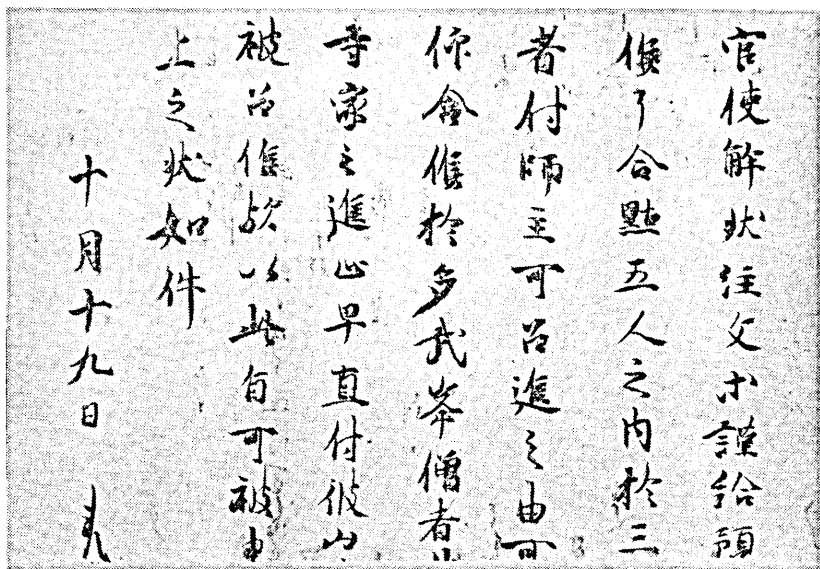 官使解状注文等謹給預
候了合點五人之内於三
者付師主可召進之由可
仰含候於多武峯僧者
寺家之進止早直付彼山
被召候歟以此旨可被申
上之状如件
十月十九日